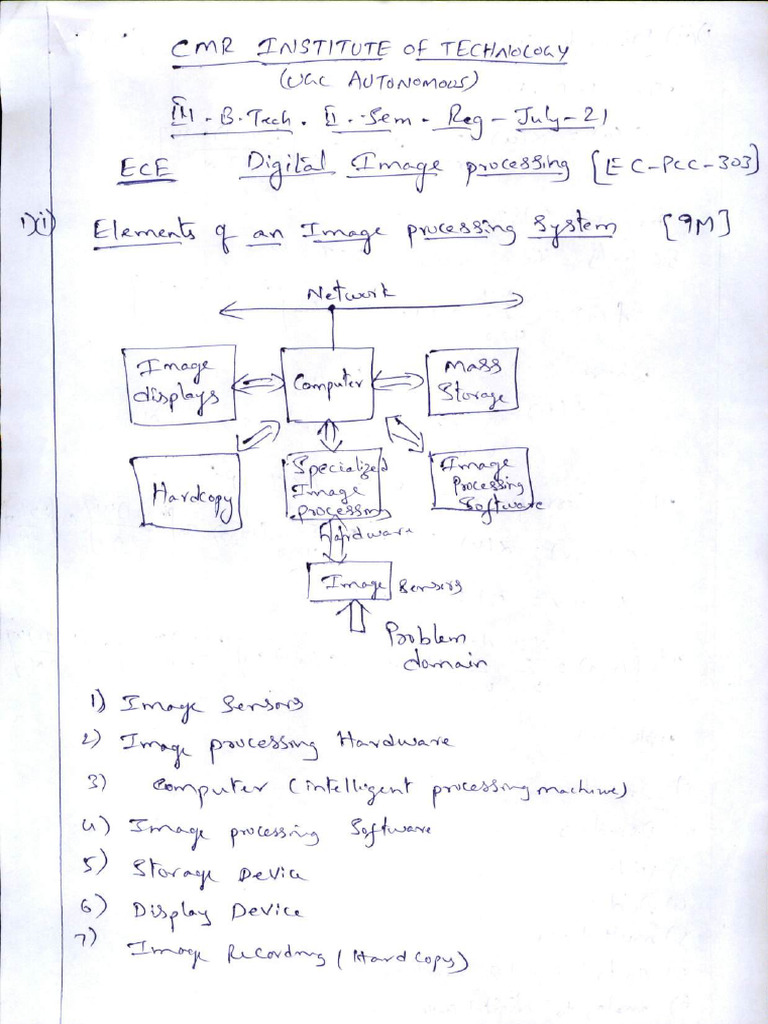 CMR INSTITUTE OF TECHNOLOGY
(UGC AUTONOMOUS)
III - B.Tech. II - Sem - Reg - July - 21
ECE Digital Image processing [EC-PCC-303]
1)(i) Elements of an Image processing System [9M]
Network
Image displays
Computer
Mass Storage
Hardcopy
Specialized Image processing Hardware
Image Processing Software
Image Sensors
Problem domain
1) Image Sensors
2) Image processing Hardware
3) Computer (intelligent processing machine)
4) Image processing Software
5) Storage Device
6) Display Device
7) Image Recording (Hard Copy)